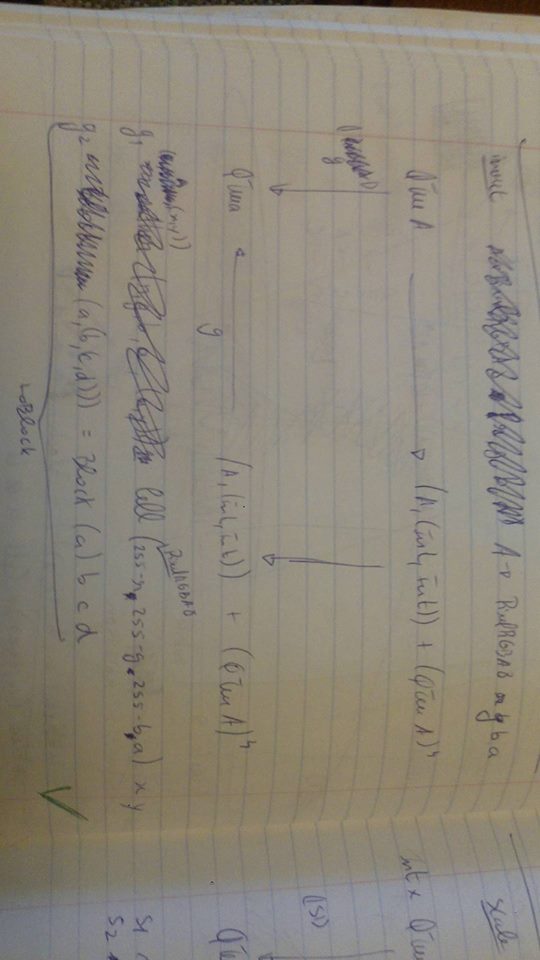 invert A → PixelRGBA8 r g b a
QTree A (A, (int, int)) + (QTree A)^4
g
QTree a (A, (int, int)) + (QTree A)^4
g
PixelRGBA8
g1 Cell (255-r, 255-g, 255-b, a) x y
g2 (a,(b,(c,d))) = Block (a) b c d
toBlock
scale
int x QTree
(|S|)
S1
S2